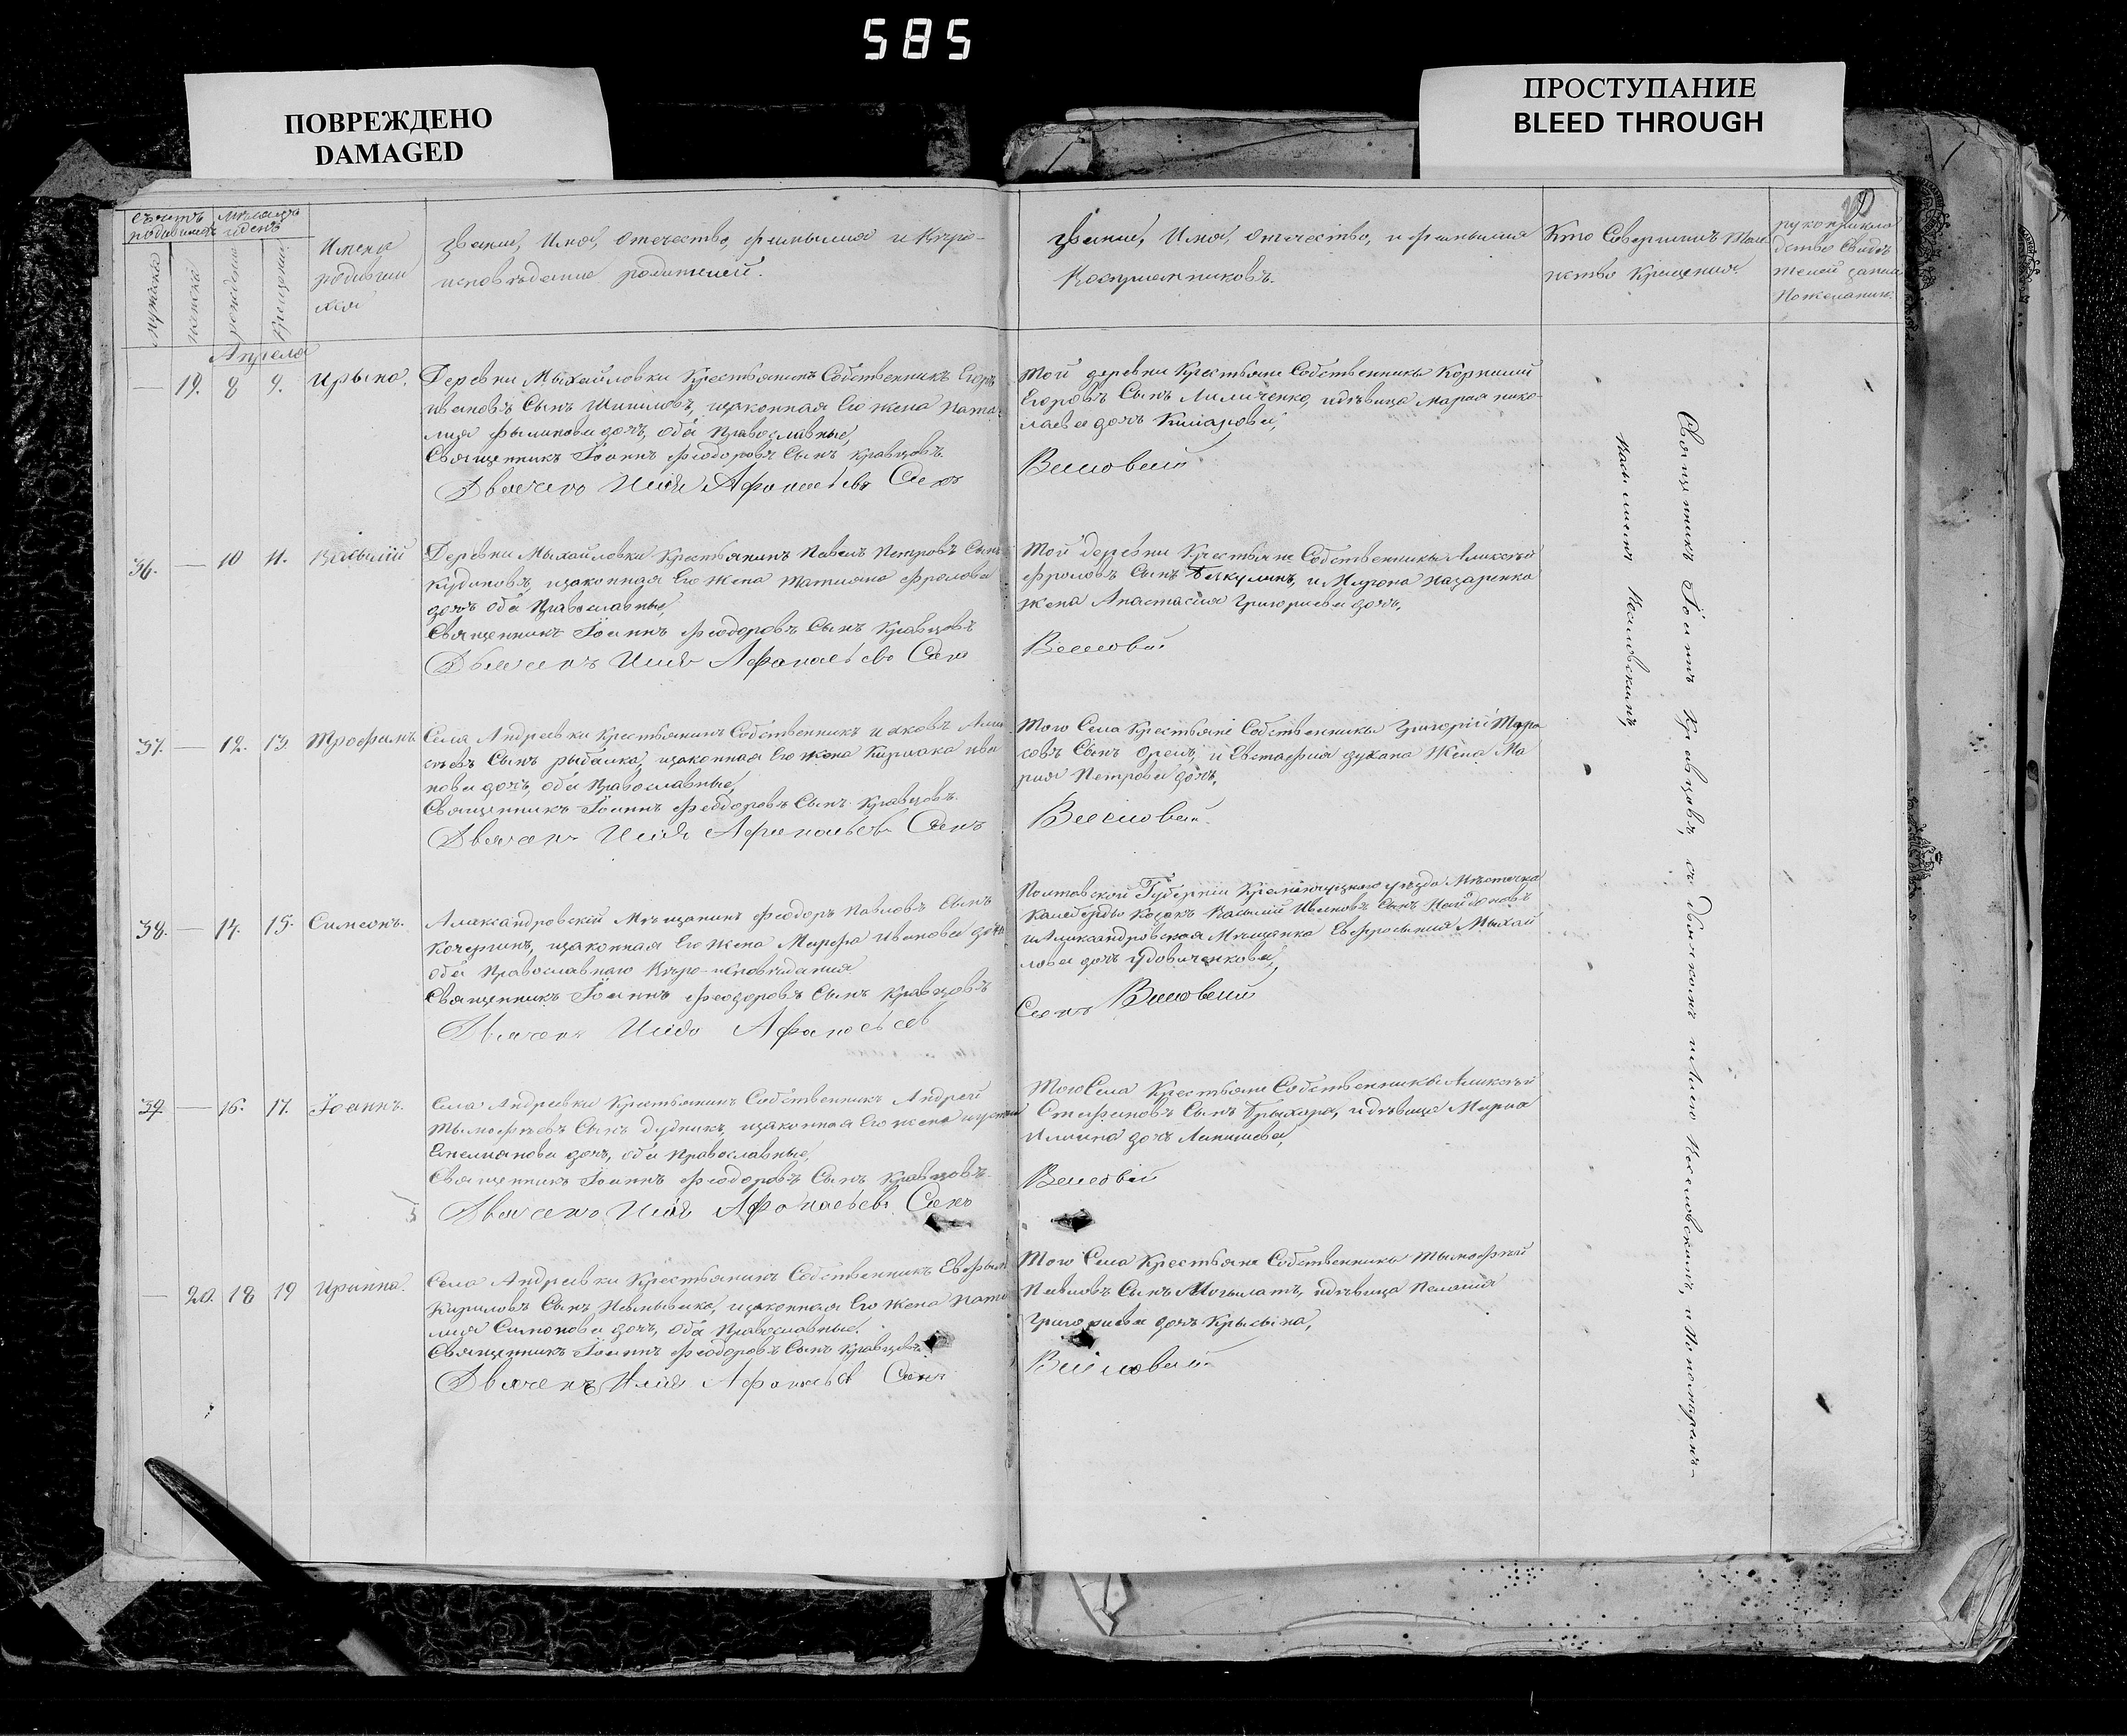 585
ПОВРЕЖДЕНО
DAMAGED
ПРОСТУПАНИЕ
BLEED THROUGH
Счетъ родившихся
Мѣсяцъ и день
мужска
женска
рожденія
крещенія
Имена
родивши
хся
Званіе, Имя, Отечество, фамылия и Вѣро-
исповѣданіе родителей.
Званіе, Имя, Отечество, и Фамылия
Воспріемниковъ.
Кто Совершилъ Таин
ство Крещенія.
рукоприкла
дство Свидѣ
телей запис
По желанію.
Апреля
19. 8 9. Ирына.
Деревни Мыхайловки Крестьянинъ Собственникъ Егоръ
Ивановъ Сынъ Шипиловъ, изаконная Его жена Ната
лия Филипова дочь, оба Православные,
Священникъ Іоаннъ Феодоровъ Сынъ Кравцовъ
Дьячекъ Илія Афанасьевъ Сынъ
Той деревни Крестьяне Собственники Корнилий
Егоровъ Сынъ Лиличенко, идѣвица Мария Нико
лаева дочь
36. 10 11. Васылій
Деревни Мыхайловки Крестьянинъ Павелъ Петровъ Сынъ
Кудиновъ, изаконная Его жена Татияна Фролова
дочь оба Православные,
Священникъ Іоаннъ Феодоровъ Сынъ Кравцовъ
Дьячекъ Илія Афанасьевъ Сынъ
Той деревни Крестьяне Собственники Аликсѣй
Фроловъ Сынъ и Мирона Назаренка
жена Анастасия Григориева дочь,
37. 12. 13 Трофимъ
Села Андреевки Крестьянинъ Собственникъ Иаковъ Али
сѣевъ Сынъ рыбалка, изаконная Его жена Кириака Ива
нова дочь, оба Православные,
Священникъ Іоаннъ Феодоровъ Сынъ Кравцовъ.
Дьячекъ Илія Афанасьевъ Сынъ
Того Села Крестьяне Собственники Григорій Тара
совъ Сынъ Орелъ, и Евстафия духана Жена Ма
рия Петрова дочь,
38. 14. 15. Симеонъ.
Александровскій Мѣщанинъ Феодоръ Павловъ Сынъ
Кочергинъ, изаконная Его жена Марфа Иванова дочь
оба Православнаго Вѣро-исповѣдания
Священникъ Іоаннъ Феодоровъ Сынъ Кравцовъ
Дьячекъ Илія Афанасьев
Полтавской Губерніи Кременчуцкаго уѣзда Мѣстечка
Келеберды Козакъ Васылій Ивановъ Сынъ Найдоновъ
и Александровская Мѣщанка Евфросыния Мыхай
лова дочь Удовиченкова,
Сынъ
39. 16. 17. Іоаннъ.
Села Андреевки Крестьянинъ Собственникъ Андрей
Тымофѣевъ Сынъ дудникъ, изаконная Его жена
Емелианова дочь, оба Православные,
Священникъ Іоаннъ Феодоровъ Сынъ Кравцовъ.
Дьячекъ Илія Афанасьевъ Сынъ
Того Села Крестьяне Собственники Аликсѣй
Стефановъ Сынъ Брыхара, идѣвица Мария
Илиина дочь
20. 18 19 Иринна.
Села Андреевки Крестьянинъ Собственникъ Евфим
Кириловъ Сынъ изаконная Его жена Ната
лия Симонова дочь, оба Православные.
Священникъ Іоаннъ Феодоровъ Сынъ Кравцовъ.
Дьячекъ Илія Афанасьев Сынъ
Того Села Крестьяне Собственники Тымофѣй
Павловъ Сынъ идѣвица Пелагия
Григориева дочь Крысына,
Священникъ Іоаннъ Кравцовъ, съ Дьячкомъ и Пономаремъ